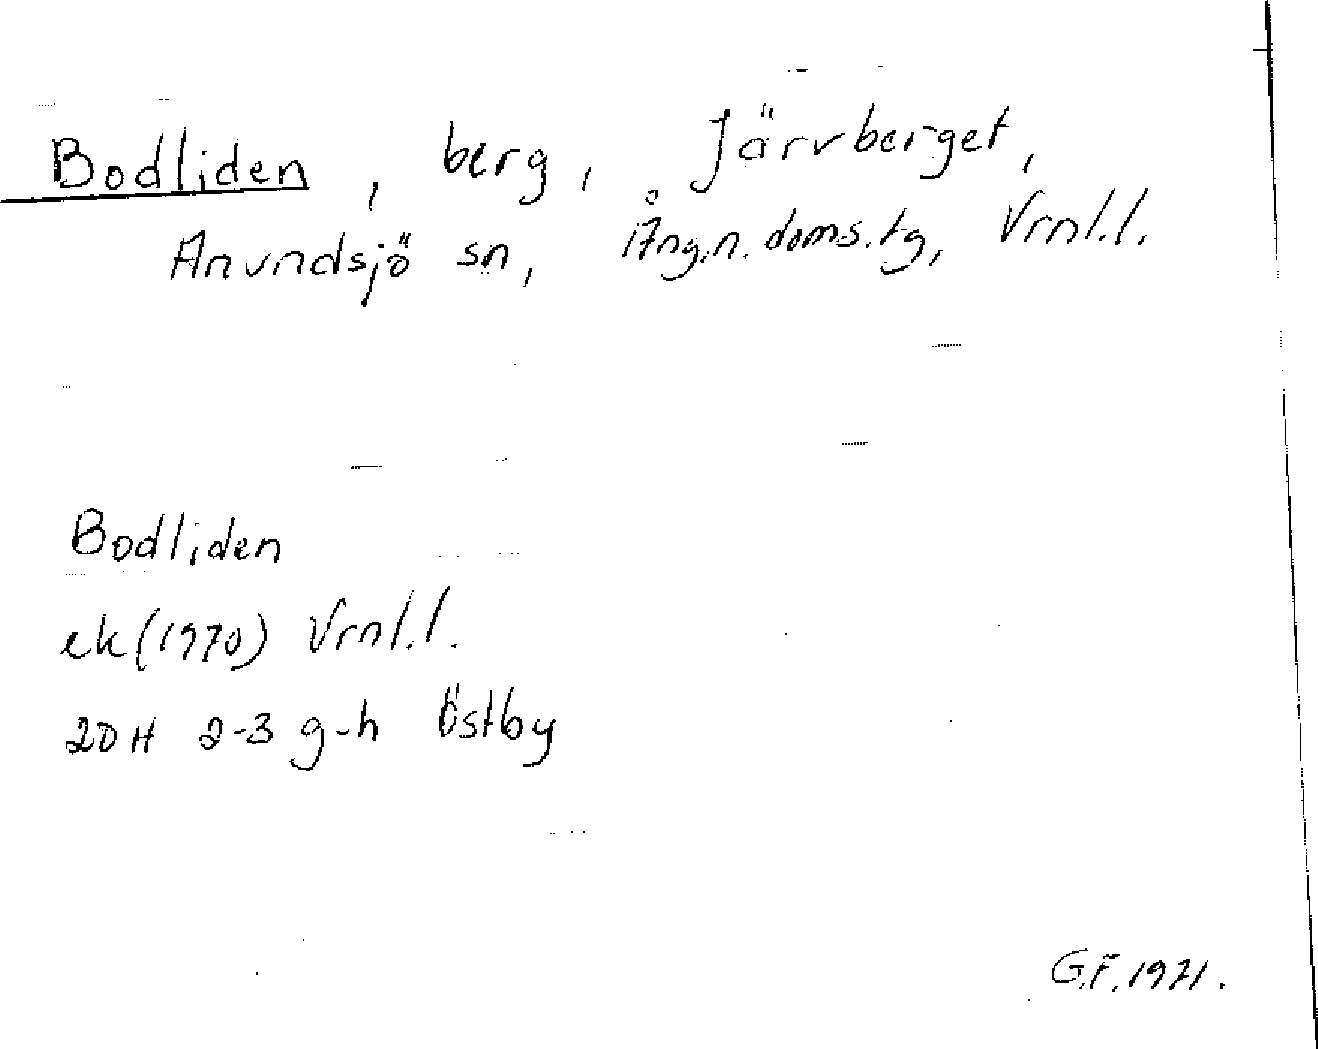 Bodliden, berg, Järvberget,
Anundsjö sn, Ång.n. doms.tg, Vrnl.l.
Bodliden
ek(1970) Vrnl.l.
20H 2-3 g-h Östby
G.F. 1971.